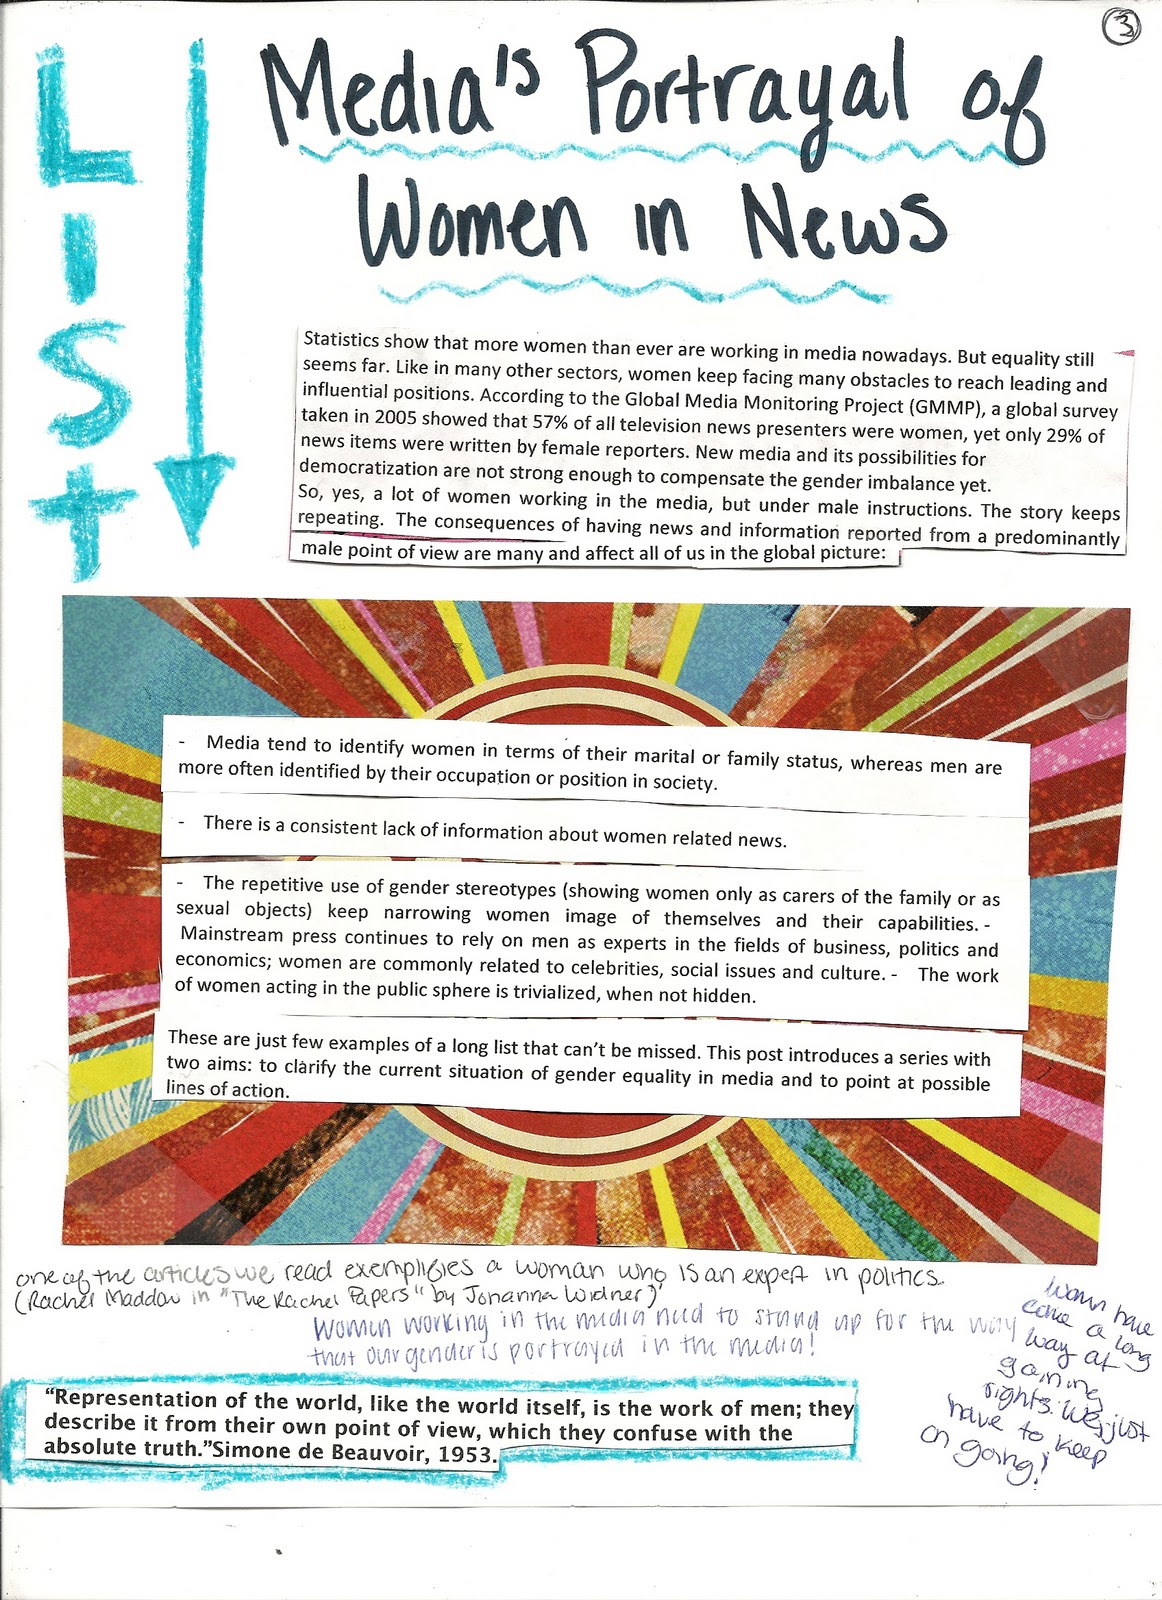 3
LIST
Media's Portrayal of
Women in News
Statistics show that more women than ever are working in media nowadays. But equality still
seems far. Like in many other sectors, women keep facing many obstacles to reach leading and
influential positions. According to the Global Media Monitoring Project (GMMP), a global survey
taken in 2005 showed that 57% of all television news presenters were women, yet only 29% of
news items were written by female reporters. New media and its possibilities for
democratization are not strong enough to compensate the gender imbalance yet.
So, yes, a lot of women working in the media, but under male instructions. The story keeps
repeating. The consequences of having news and information reported from a predominantly
male point of view are many and affect all of us in the global picture:
- Media tend to identify women in terms of their marital or family status, whereas men are
more often identified by their occupation or position in society.
- There is a consistent lack of information about women related news.
- The repetitive use of gender stereotypes (showing women only as carers of the family or as
sexual objects) keep narrowing women image of themselves and their capabilities. -
Mainstream press continues to rely on men as experts in the fields of business, politics and
economics; women are commonly related to celebrities, social issues and culture. - The work
of women acting in the public sphere is trivialized, when not hidden.
These are just few examples of a long list that can't be missed. This post introduces a series with
two aims: to clarify the current situation of gender equality in media and to point at possible
lines of action.
one of the articles we read exemplifies a woman who is an expert in politics.
(Rachel Maddow in "The Rachel Papers" by Johanna Widner)
Women working in the media need to stand up for the way
that our gender is portrayed in the media!
women have
come a long
way at
gaining
rights. We just
have to keep
on going!
"Representation of the world, like the world itself, is the work of men; they
describe it from their own point of view, which they confuse with the
absolute truth."Simone de Beauvoir, 1953.